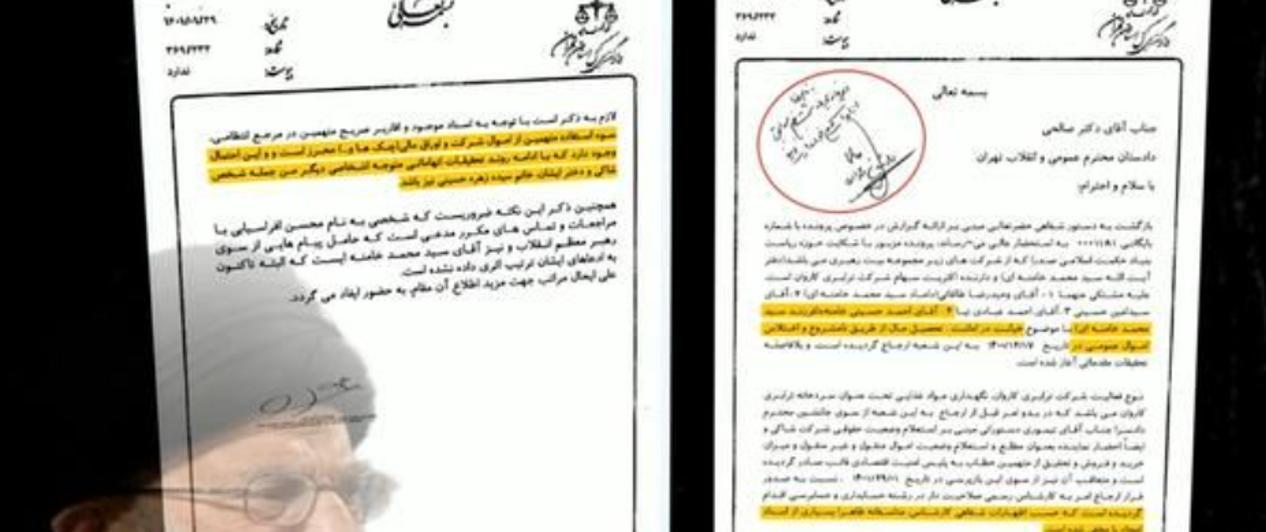 ۱۴۰۱/۰۹/۲۹
تاریخ:
بسمه تعالی
۳۶۹/۲۳۲
شماره:
ندارد
پیوست:
لازم به ذکر است با توجه به اسناد موجود و اقاریر صریح متهمین در مرجع انتظامی،
سوء استفاده متهمین از اموال شرکت و اوراق مالی(چک ها و) محرز است و و این احتمال
وجود دارد که با ادامه روند تحقیقات اتهاماتی متوجه اشخاصی دیگر من جمله شخص
شاکی و دختر ایشان خانم سیده زهره حسینی نیز باشد.
همچنین ذکر این نکته ضروریست که شخصی به نام محسن افراسیابی با
مراجعات و تماس های مکرر مدعی است که حامل پیام هایی از سوی
رهبر معظم انقلاب و نیز آقای سید محمد خامنه ایست که البته تاکنون
به ادعاهای ایشان ترتیب اثری داده نشده است.
علی ایحال مراتب جهت مزید اطلاع آن مقام، به حضور ایفاد می گردد.
۳۶۹/۲۳۲
ندارد
پیوست:
بسمه تعالی
جناب آقای دکتر صالحی
دادستان محترم عمومی و انقلاب تهران
با سلام و احترام؛
بازگشت به دستور شفاهی حضرتعالی مبنی بر ارائه گزارش در خصوص پرونده با شماره
بایگانی به استحضار عالی می رساند، پرونده مزبور با شکایت حوزه ریاست
بنیاد حکمت اسلامی صدرا که از شرکت های زیر مجموعه بیت رهبری می باشد(دفتر
آیت الله سید محمد خامنه ای) و دارنده اکثریت سهام شرکت ترابری کاروان است،
علیه مشتکی عنهما ۱- آقای وحیدرضا طالقانی(داماد سید محمد خامنه ای) ۲-آقای
سیدامین حسینی ۳-آقای احمد عبادی نیا ۴- آقای احمد حسینی خامنه(فرزند سید
محمد خامنه ای) با موضوع خیانت در امانت، تحصیل مال از طریق نامشروع و اختلاس
اموال عمومی در تاریخ ۱۴۰۰/۱۲/۱۷ به این شعبه ارجاع گردیده است و بلافاصله
تحقیقات مقدماتی آغاز شده است.
نوع فعالیت شرکت ترابری کاروان نگهداری مواد غذایی تحت عنوان سردخانه ترابری
کاروان می باشد که در بدو امر قبل از ارجاع به این شعبه از سوی جانشین محترم
دادسرا جناب آقای تیموری دستوراتی مبنی بر استعلام وضعیت حقوقی شرکت شاکی و
ایضاً احضار نماینده بعنوان مطلع و استعلام وضعیت اموال منقول و غیر منقول و میزان
خرید و فروش و تحقیق از متهمین خطاب به پلیس امنیت اقتصادی قالب صادر گردیده
است و متعاقب آن نیز از سوی این بازپرسی در تاریخ نسبت به صدور
قرار ارجاع امر به کارشناس رسمی صلاحیت دار در رشته حسابداری و حسابرسی اقدام
گردیده است که حسب اظهارات شفاهی کارشناس، متاسفانه ظاهرا بسیاری از اسناد